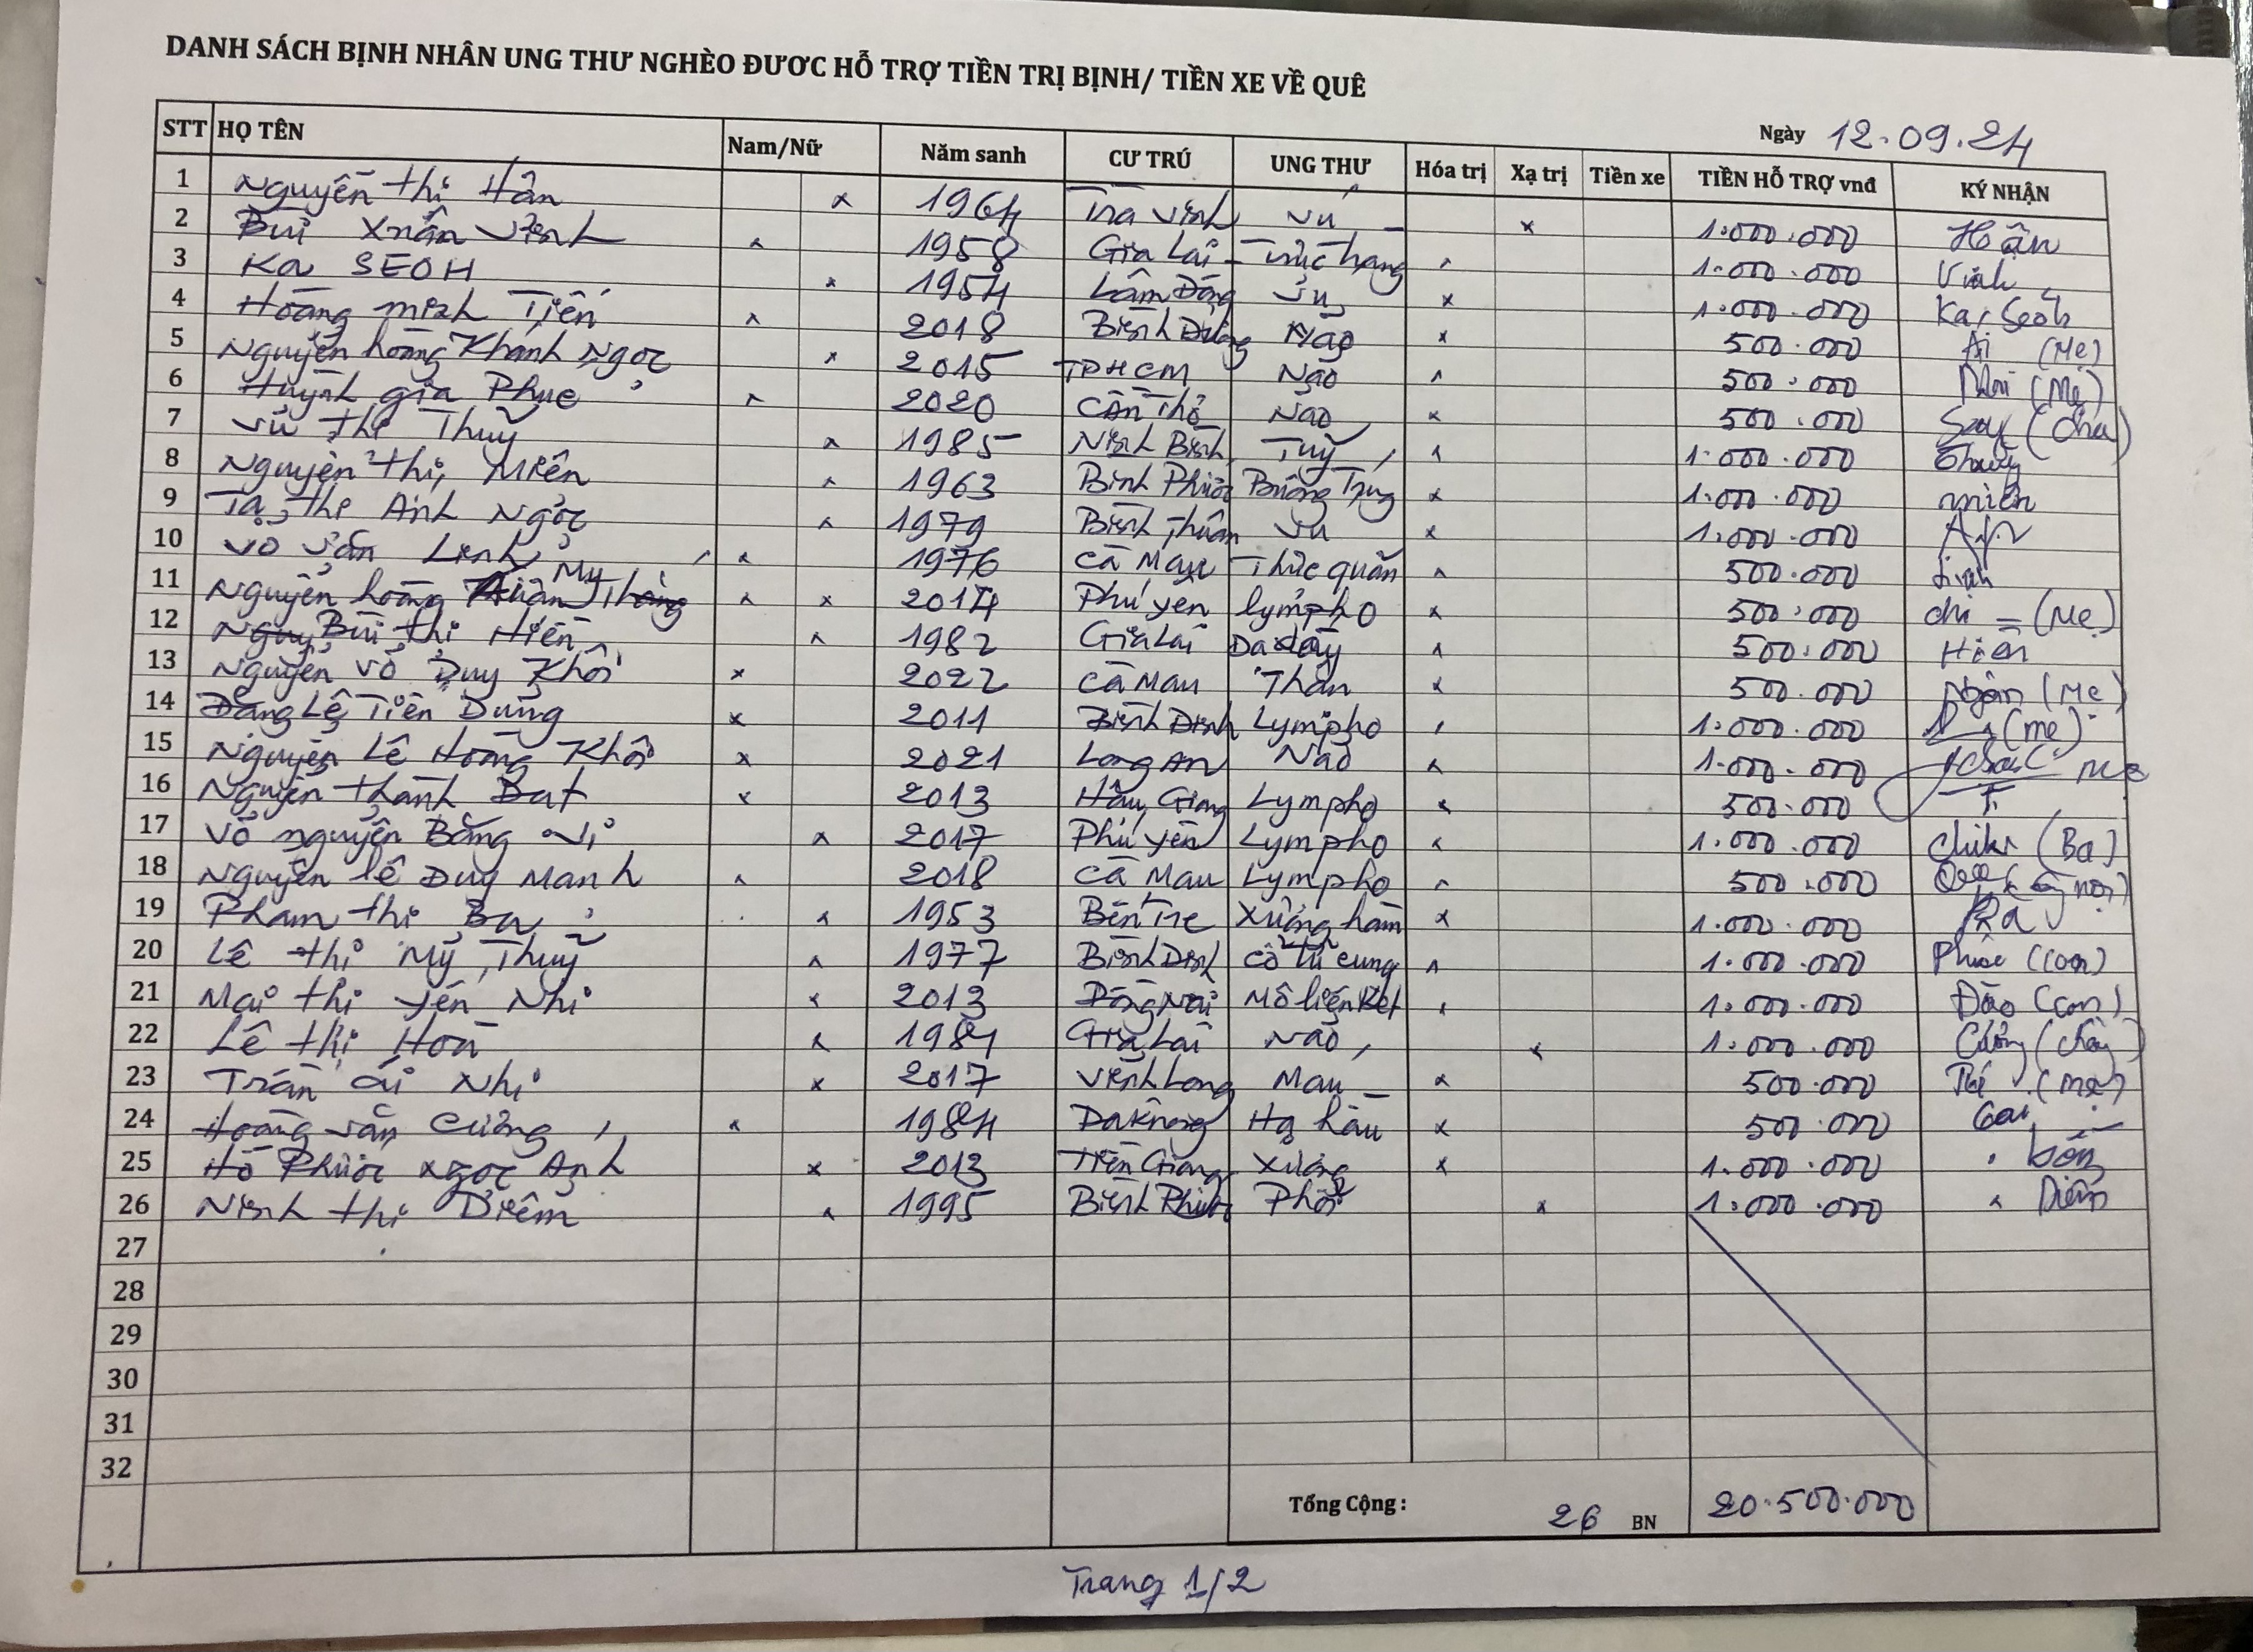 DANH SÁCH BỊNH NHÂN UNG THƯ NGHÈO ĐƯƠC HỖ TRỢ TIỀN TRỊ BỊNH/ TIỀN XE VỀ QUÊ
Ngày 12.09.24
STT HỌ TÊN Nam/Nữ Năm sanh CƯ TRÚ UNG THƯ Hóa trị Xạ trị Tiền xe TIỀN HỖ TRỢ vnđ KÝ NHẬN
1 Nguyễn thị Hân x 1964 Trà Vinh Vú x 1.000.000 Hân
2 Bùi Xuân Vinh x 1958 Gia Lai Trực tràng x 1.000.000 Vinh
3 Ka SEOH x 1954 Lâm Đồng Vú x 1.000.000 Ka, Seoh
4 Hoàng minh Tiến x 2018 Bình Dương Não x 500.000 Ái (Mẹ)
5 Nguyễn hoàng Khánh Ngọc x 2015 TPHCM Não x 500.000 (Mẹ)
6 Huỳnh gia Phúc x 2020 Cần Thơ Não x 500.000 (Cha)
7 Vũ thị Thuỷ x 1985 Ninh Bình Tuỷ x 1.000.000 Thuỷ
8 Nguyễn thị Miên x 1963 Bình Phước Buồng Trứng x 1.000.000 miên
9 Tạ thị Ánh Ngọc x 1979 Bình Thuận Vú x 1.000.000
10 Võ văn Linh x 1976 Cà Mau Thực quản x 500.000
11 Nguyễn hoàng My x x 2014 Phú yên lympho x 500.000 chi (Mẹ)
12 Bùi thị Hiền x 1982 Gia Lai Dạ dày x 500.000 Hiền
13 Nguyễn Võ Duy Khôi x 2022 Cà Mau Thận x 500.000 Ngân (Mẹ)
14 Đặng Lê Tiến Dũng x 2011 Bình Định Lympho 1.000.000 (mẹ)
15 Nguyễn Lê Hoàng Khôi x 2021 Long An Não x 1.000.000 Mẹ
16 Nguyễn thành Đạt x 2013 Hậu Giang Lympho x 500.000
17 Võ nguyên Băng Vi x 2017 Phú Yên Lympho x 1.000.000 (Ba)
18 Nguyễn lê Duy Mạnh x 2018 Cà Mau Lympho x 500.000 nội)
19 Phạm thị Ba x 1953 Bến Tre Xương hàm x 1.000.000 Ba
20 Lê thị Mỹ Thuỷ x 1977 Bình Định Cổ tử cung x 1.000.000 Phúc (con)
21 Mai thị Yến Nhi x 2013 Đồng Nai Mô liên kết x 1.000.000 Đào (con)
22 Lê thị Hoà x 1981 Gia Lai Não x 1.000.000 (chồng)
23 Trần ái Nhi x 2017 Vĩnh Long Máu x 500.000 (mẹ)
24 Hoàng văn Cường x 1984 Đaknong Hạ hầu x 500.000
25 Hồ Phước Ngọc Anh x 2013 Tiền Giang Xương x 1.000.000
26 Ninh thị Diễm x 1995 Bình Phước Phổi x 1.000.000 Diễm
27
28
29
30
31
32
Tổng Cộng : 26 BN 20.500.000
Trang 1/2